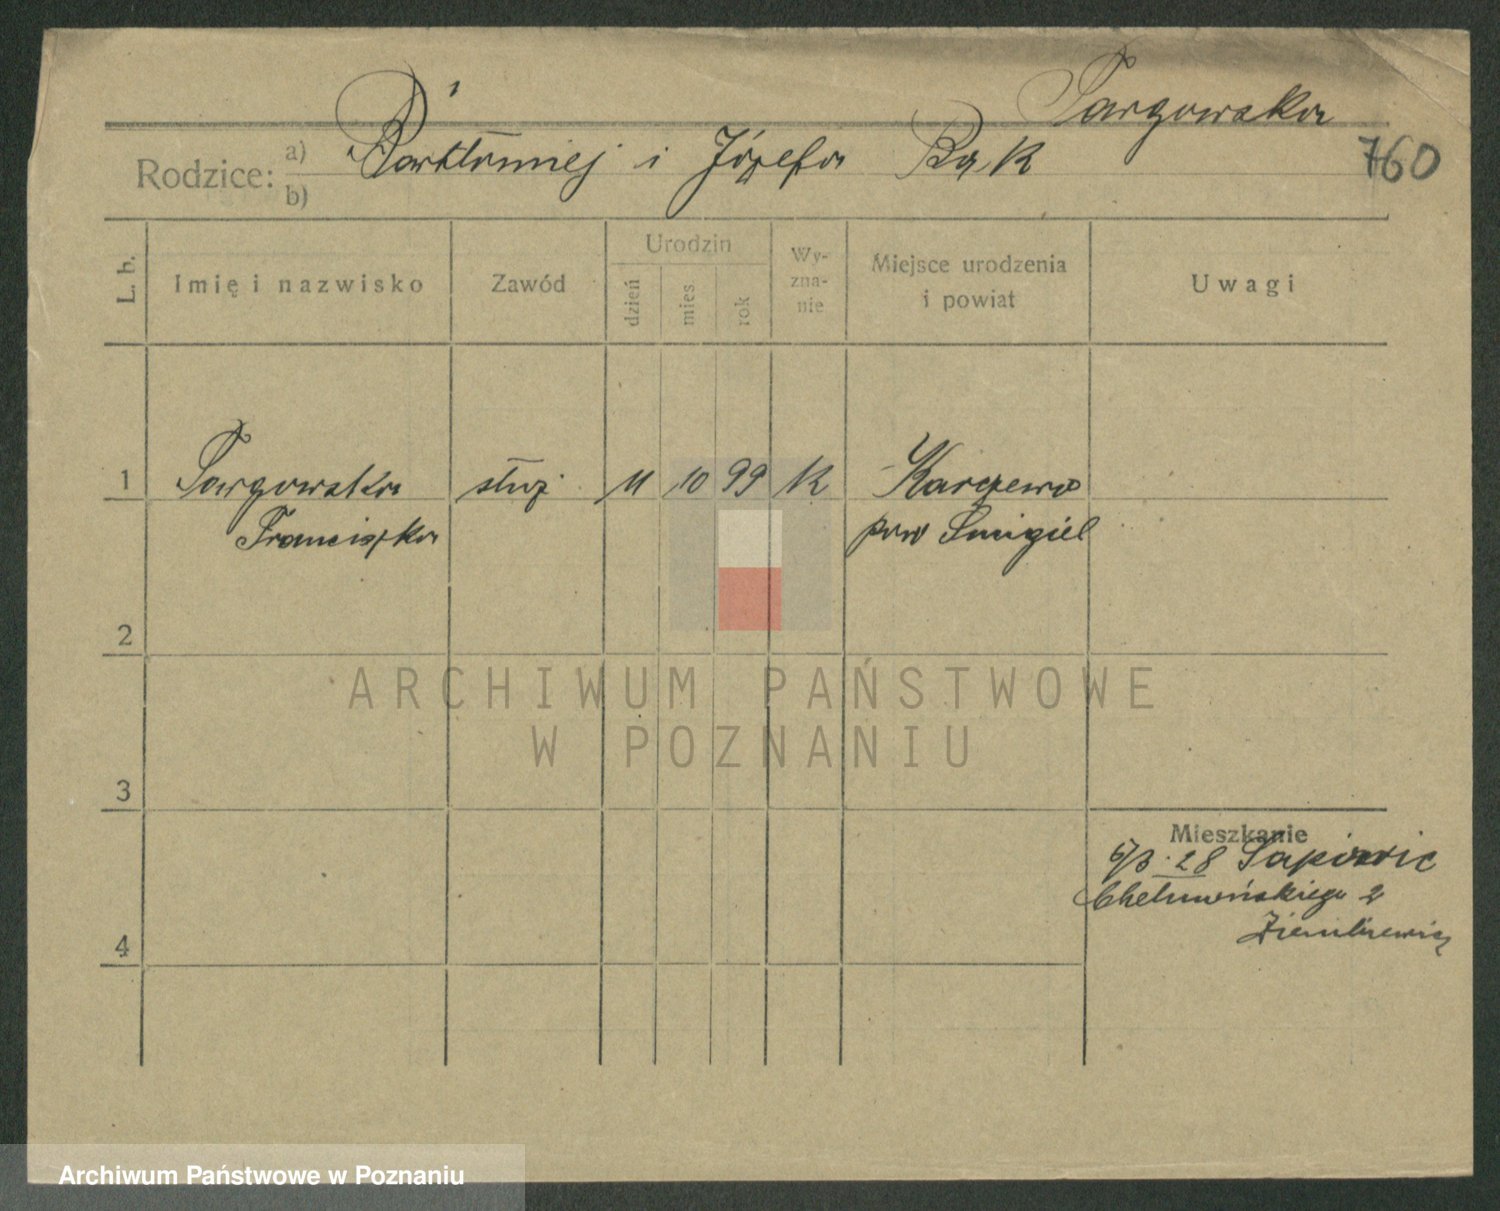 Targowska
Rodzice: a) b) Bartłomiej i Józefa Bąk
760
L. b.
Imię i nazwisko
Zawód
Urodzin
dzień
mies
rok
Wy-
zna-
nie
Miejsce urodzenia
i powiat
Uwagi
1 Targowska służ 11 10 99 K Karczewo
Franciszka pow Śmigiel
2
3
4
Mieszkanie
6/3. 28
Chełmońskiego 2
ARCHIWUM PAŃSTWOWE
W POZNANIU
Archiwum Państwowe w Poznaniu